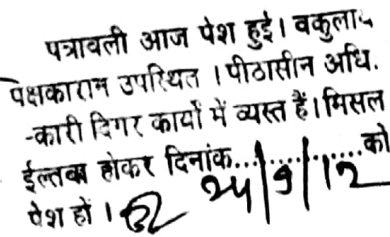 पत्रावली आज पेश हुई। वकुलाय
पक्षकारान उपस्थित । पीठासीन अधि.
-कारी दिगर कार्यो में व्यस्त हैं। मिसल
ईल्तवा होकर दिनांक..............को
पेश हों । 24/9/12